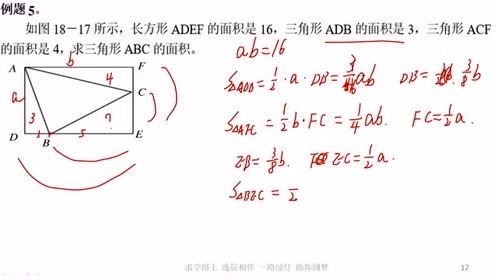 例题5。
如图 18－17 所示，长方形 ADEF 的面积是 16，三角形 ADB 的面积是 3，三角形 ACF
的面积是 4，求三角形 ABC 的面积。
ab=16
b
A
F
4
a
C
3
?
D
1
B
5
E
S△ADB = 1/2 · a · DB = 3/16 ab
DB = 3/8 b
S△AFC = 1/2 b · FC = 1/4 ab.
FC = 1/2 a.
EB = 5/8 b.
EC = 1/2 a.
S△BEC = 1/2
求学路上 逸晨相伴 一路绿灯 助你圆梦
12